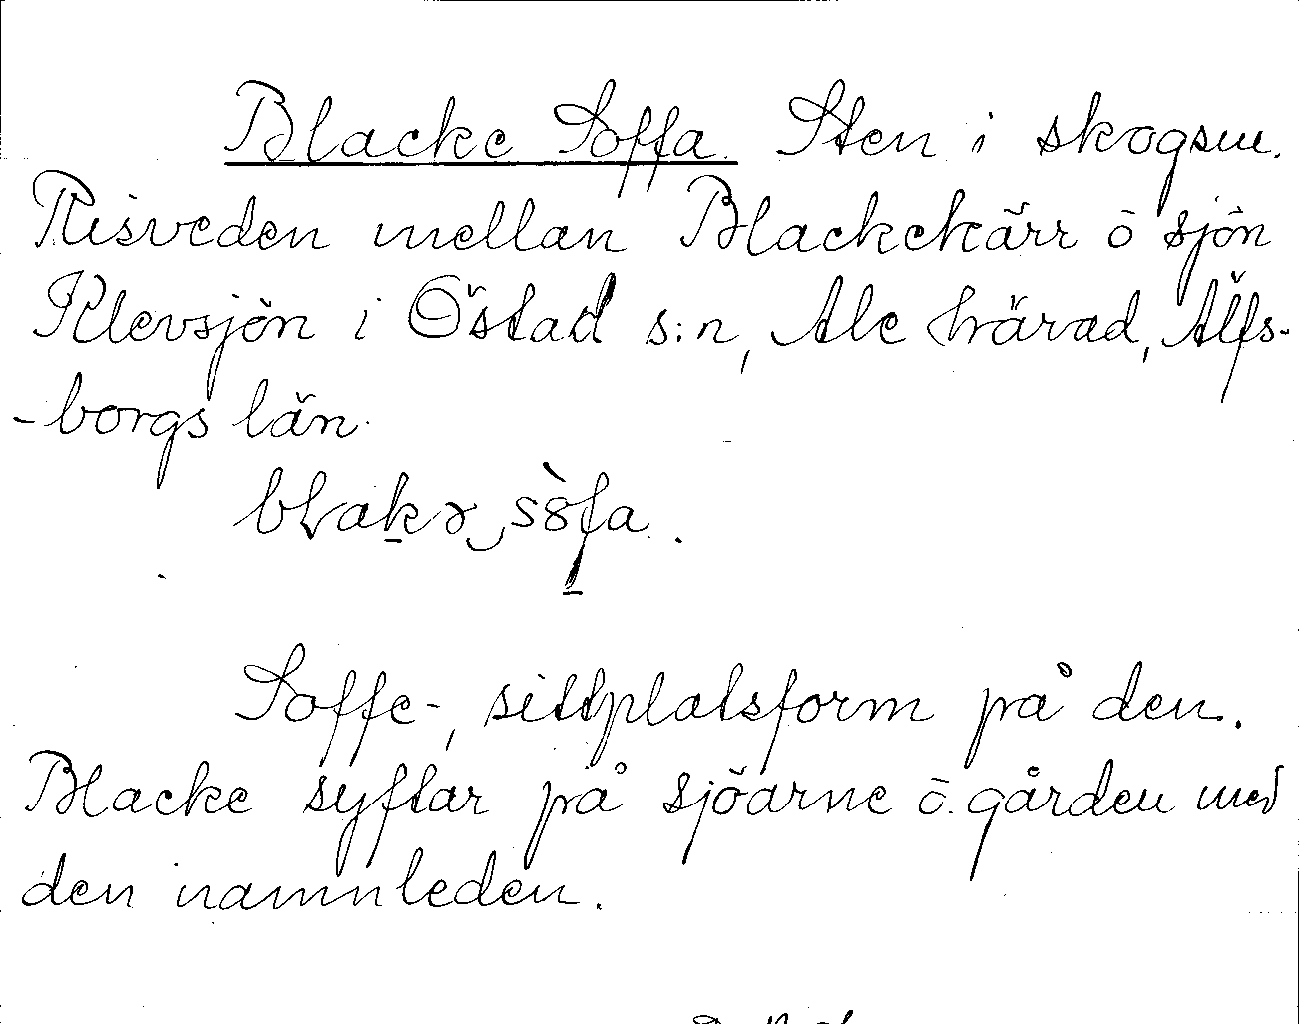 Blacke Soffa. Sten i skogsm.
Risveden mellan Blackekärr ō sjön
Klevsjön i Östad s:n, Ale härad, Älfs-
-borgs län.
Soffe-, sittplatsform på den.
Blacke syftar på sjöarne ō. gården med
den namnleden.